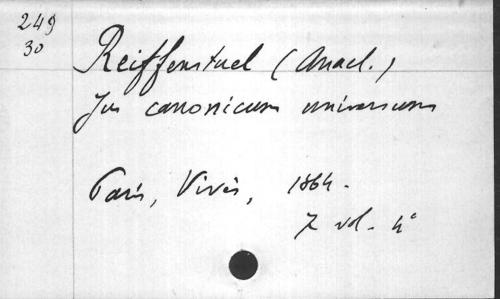 249
30
Reiffenstuel (Anacl.)
Jus canonicum universum
Paris, Vivès, 1864.
7 vol. 4°